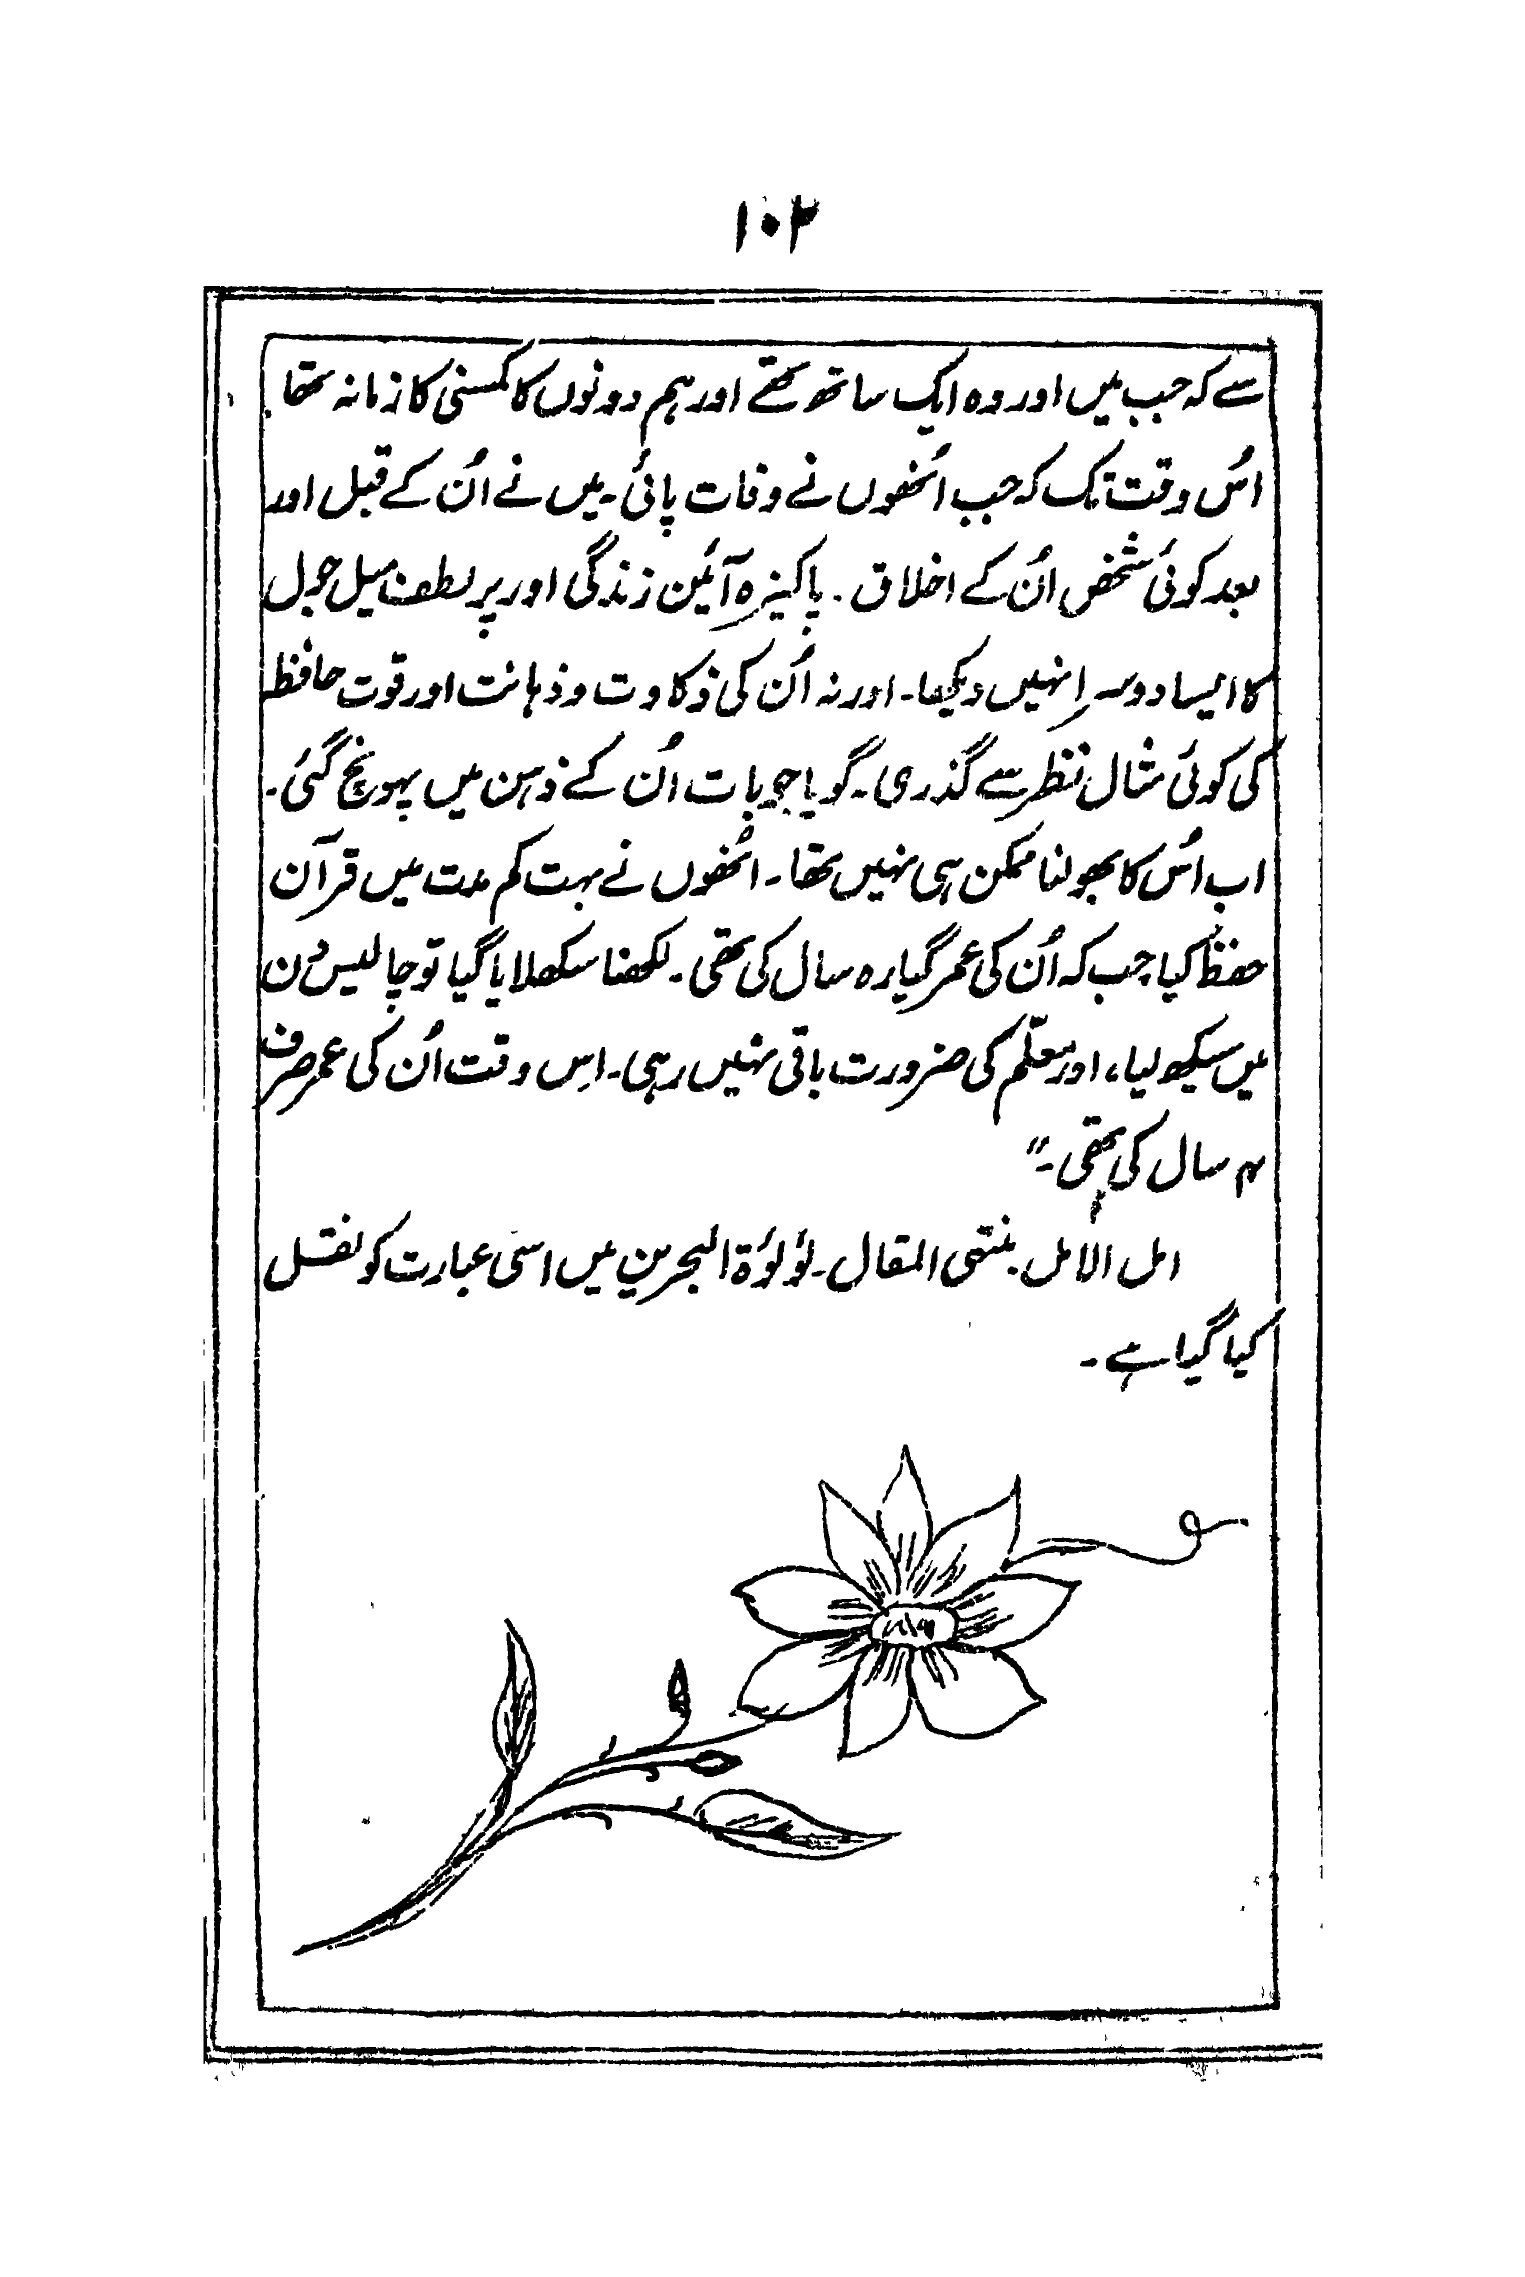 ۱۰۲
سے کہ جب میں اور وہ ایک ساتھ تھے اور ہم دونوں کا کمسنی کا زمانہ تھا
اُس وقت تک کہ جب اُنھوں نے وفات پائی۔ میں نے اُن کے قبل اور
بعد کوئی شخص اُن کے اخلاق۔ پاکیزہ آئین زندگی اور پر لطف میل جول
کا ایسا دوسرا نہیں دیکھا۔ اور نہ اُن کی ذکاوت و ذہانت اور قوت حافظہ
کی کوئی مثال نظر سے گذری۔ گویا جو بات اُن کے ذہن میں پہونچ گئی۔
اب اُس کا بھولنا ممکن ہی نہیں تھا۔ اُنھوں نے بہت کم مدت میں قرآن
حفظ کیا جب کہ اُن کی عمر گیارہ سال کی تھی۔ لکھنا سکھلایا گیا تو چالیس دن
میں سیکھ لیا، اور معلّم کی ضرورت باقی نہیں رہی۔ اِس وقت اُن کی عمر صرف
۴ سال کی تھی۔"
امل الامل۔ منتہی المقال۔ لؤلؤۃ البحرین میں اسی عبارت کو نقل
کیا گیا ہے۔